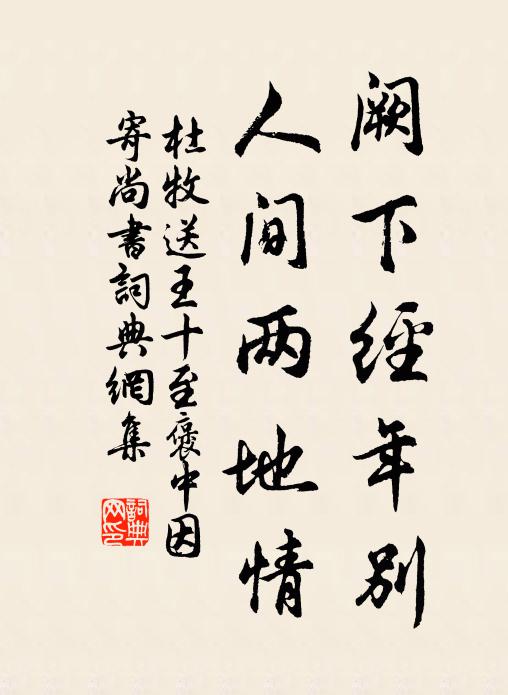 阙下經年别
人间两地情
杜牧送王十至褒中因
寄尚書詞典網集
詞典
网印